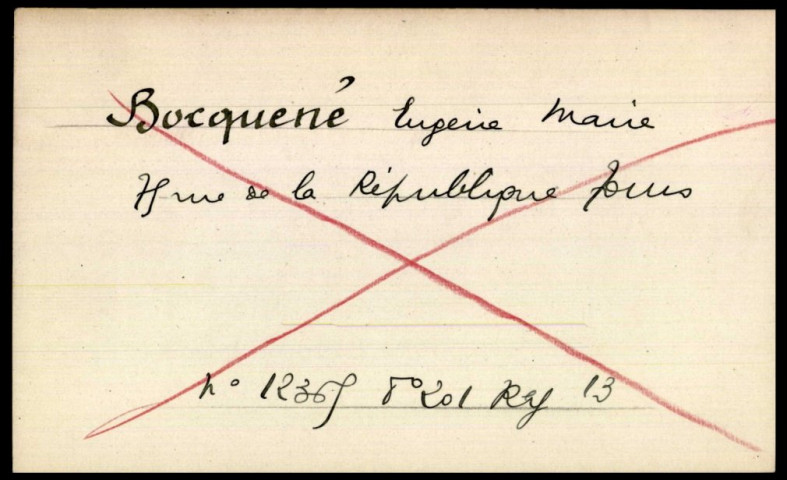 Bocquené Eugénie Marie
75 rue de la République
n° 12365 f° 201 Reg 13